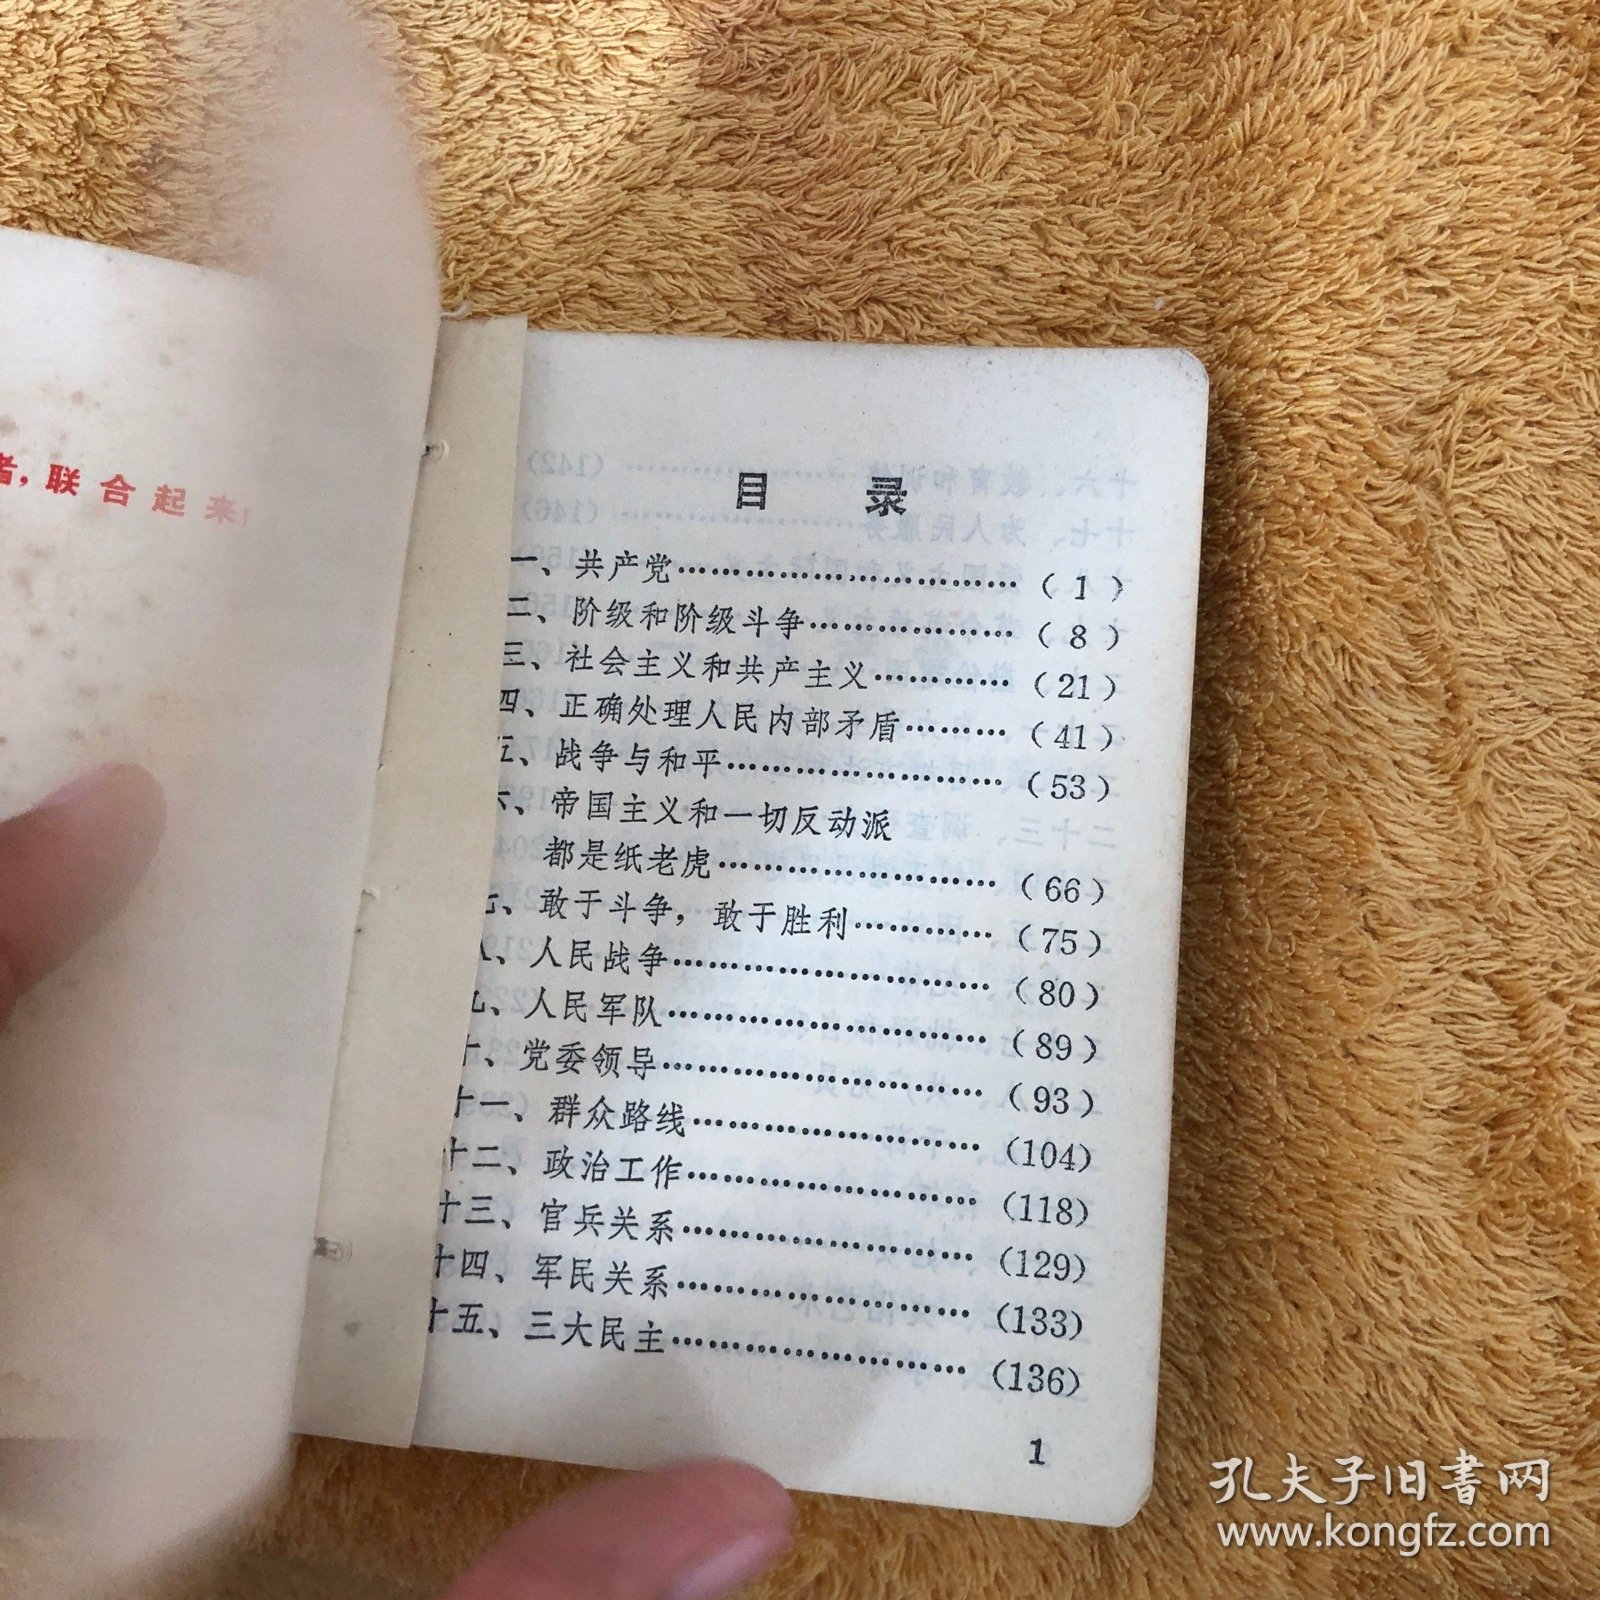 者，联合起来！
目 录
一、共产党……………………………（1）
二、阶级和阶级斗争………………（8）
三、社会主义和共产主义…………（21）
四、正确处理人民内部矛盾………（41）
五、战争与和平……………………（53）
六、帝国主义和一切反动派
都是纸老虎……………………（66）
七、敢于斗争，敢于胜利…………（75）
八、人民战争………………………（80）
九、人民军队………………………（89）
十、党委领导………………………（93）
十一、群众路线……………………（104）
十二、政治工作……………………（118）
十三、官兵关系……………………（129）
十四、军民关系……………………（133）
十五、三大民主……………………（136）
1
孔夫子旧书网
www.kongfz.com